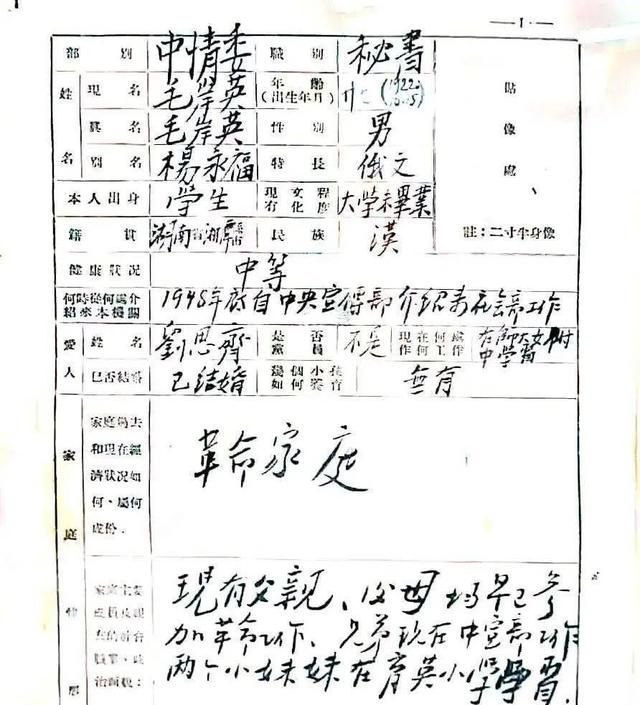 — 1 —
部 別 中情委 職 別 秘書
姓 名 現 名 毛岸英 年 齡 (出生年月) 廿七 (1922.
貼 像 處
眞 名 毛岸英 性 別 男
別 名 楊永福 特 長 俄文
本人出身 學生 現有文化程度 大学未畢業
籍 貫 湖南省湘潭 民 族 漢 註:二寸半身像
健康狀況 中等
何時從何處介紹來本機關 1948年底自中央宣傳部介紹来社會部工作
愛 人 姓 名 劉思齊 是否黨員 不是 現在何處作何工作 在師大女附中学習
已否結婚 已結婚 幾個小孩如何敎育 無有
家庭過去
和現在經 革命家庭
濟狀況如
何、屬何
成份.
家 庭
家庭主要 現有父親、後母均早已参
加革命工作、兄弟現在中宣部工作
两个小妹妹在育英小學學習.
職業、政
治面貌: